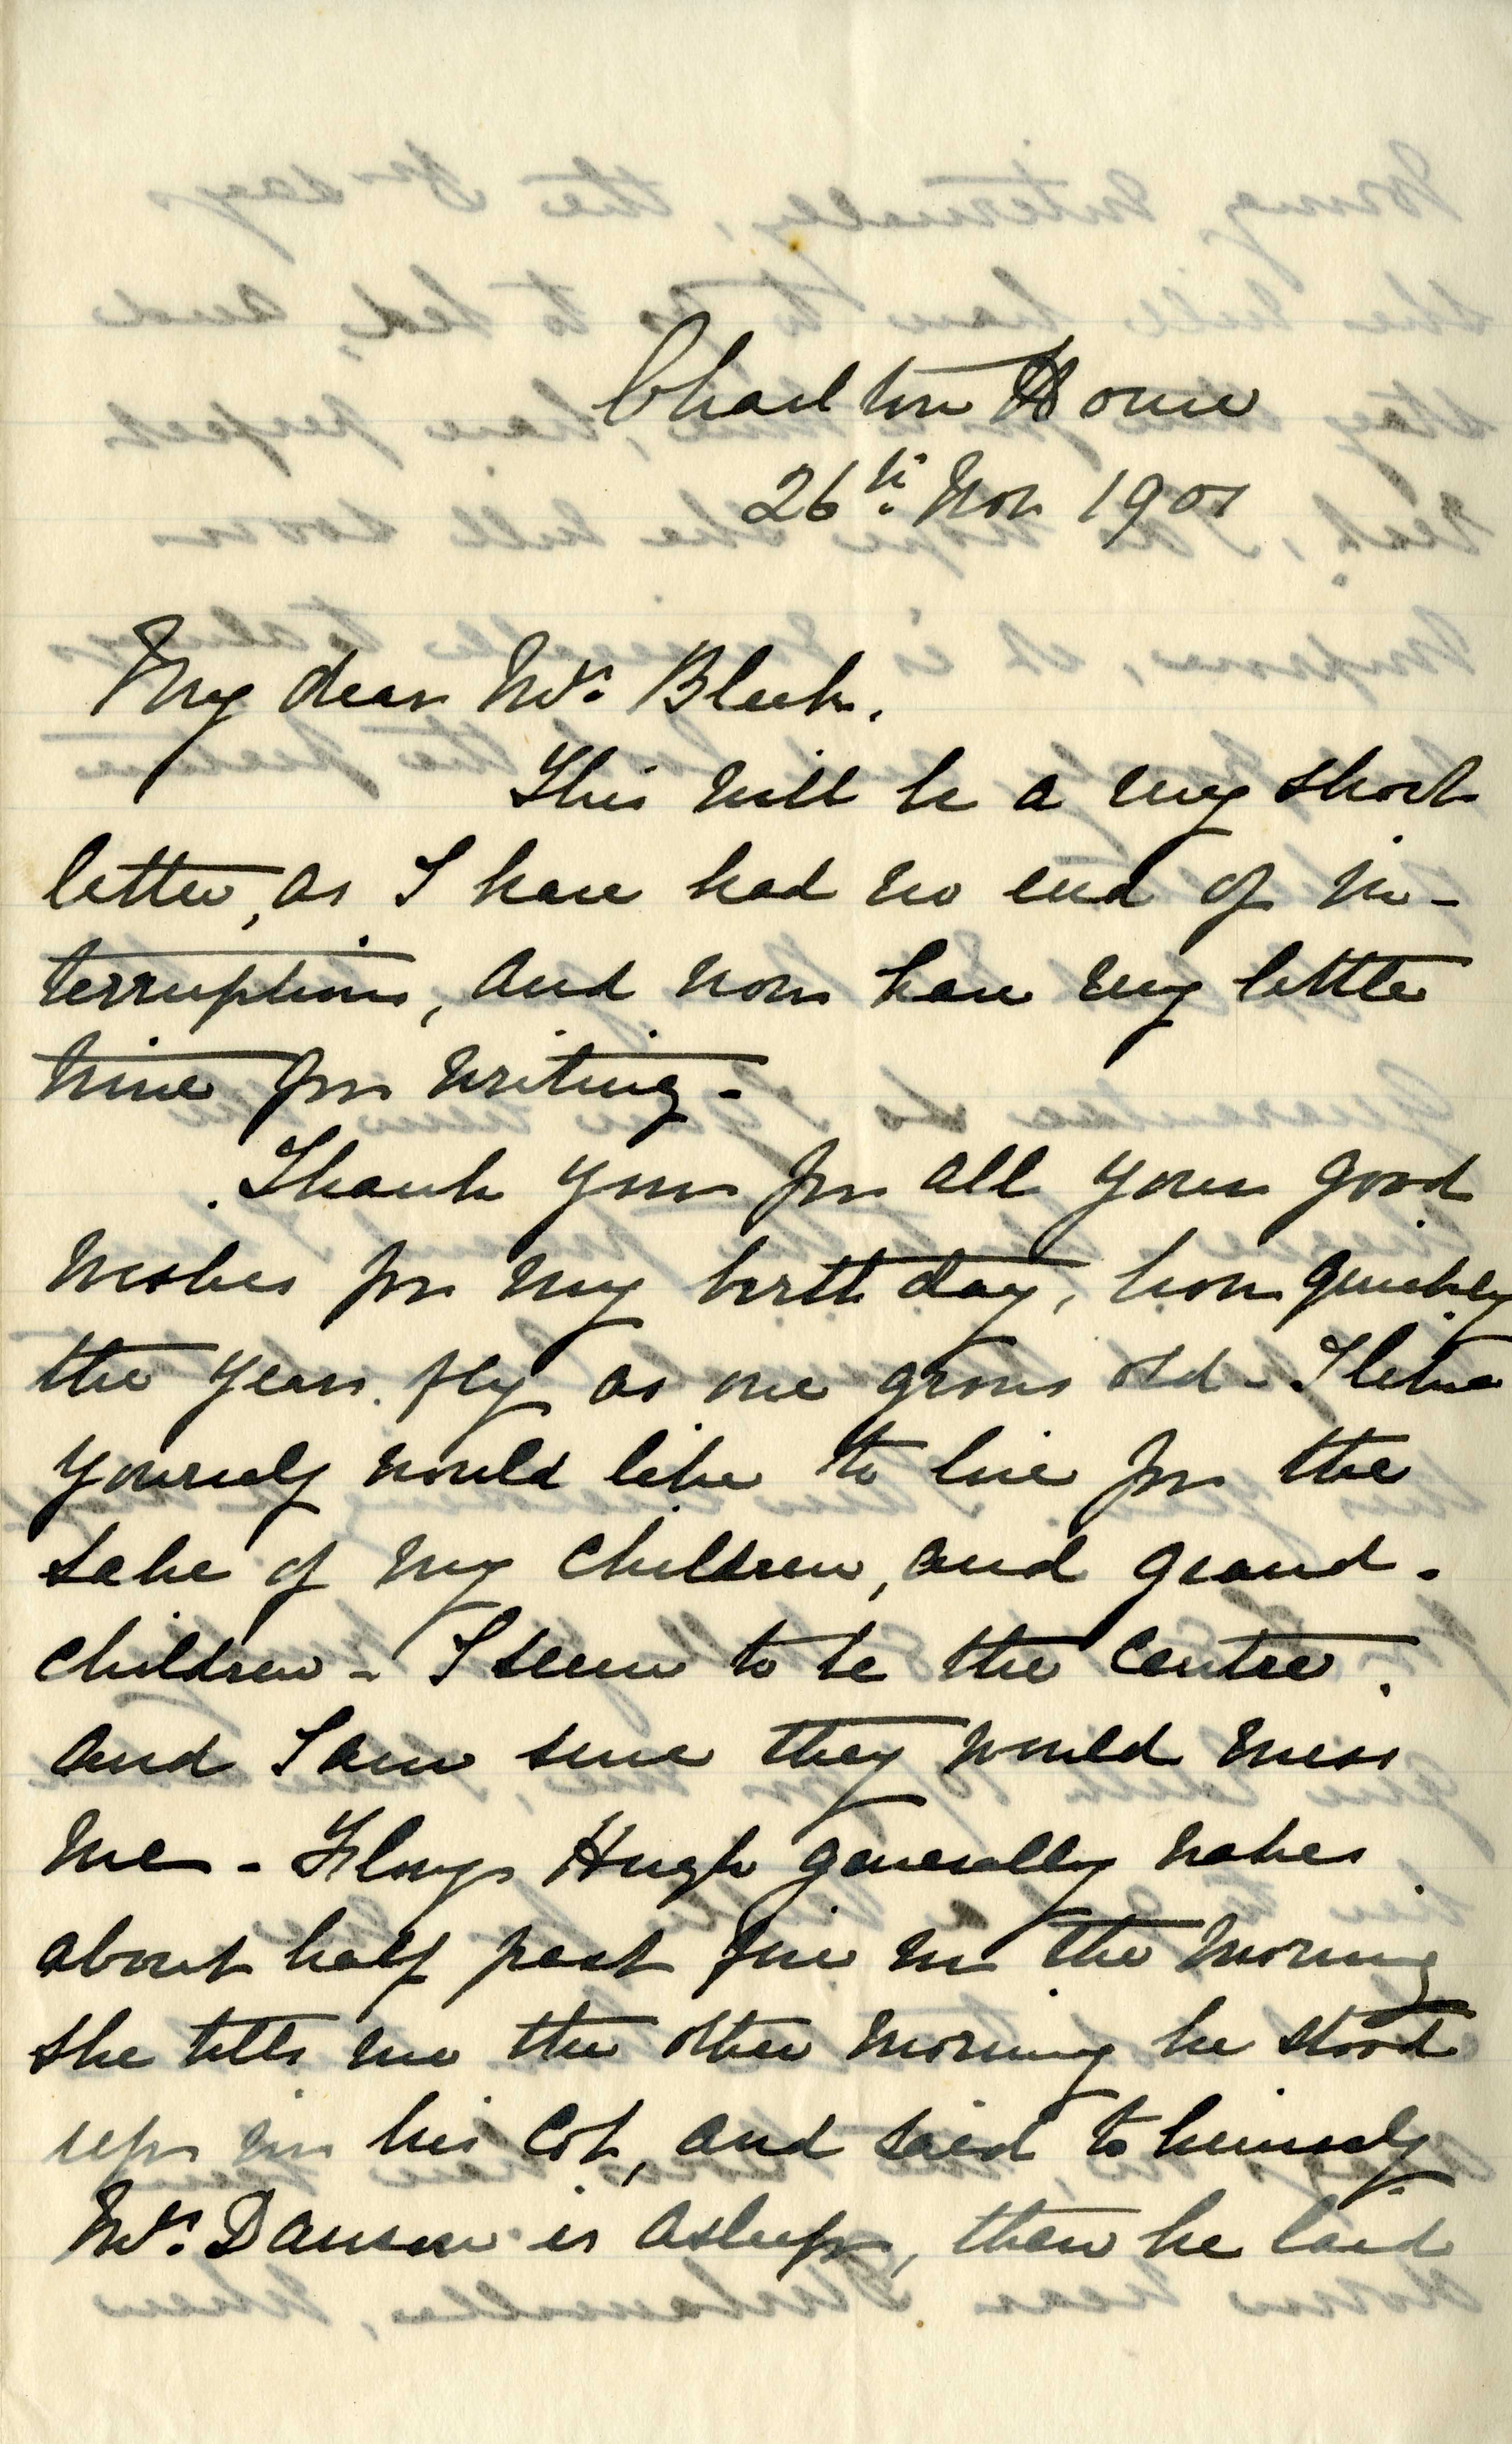 Charlton House
26th Nov 1901
My dear Mrs. Bleek.
This will be a very short
letter, as I have had no end of in-
terruptions, and now have very little
time for writing -
Thank you for all your good
wishes for my birthday, how quickly
the years fly as one grows old - I like
yourself would like to live for the
sake of my children, and grand-
children - I seem to be the centre.
and I am sure they would miss
me - Hugh generally wakes
about half past five in the morning
she tells me the other morning he stood
up in his cot, and said to himself
Mrs. Dawson is asleep, then he laid